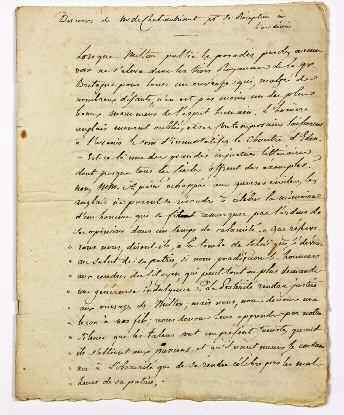 Discours de Mr de Chateaubriand pr sa Réception à
l'académie
Lorsque Milton publia le paradis perdu, aucune
voix ne s'éleva dans les trois Royaumes de la gde
Bretagne pour louer un ouvrage qui, malgré de
nombreux défauts, n'en est pas moins un des plus
beaux monumens de l'esprit humain. L'homère
anglais mourut oublié, et ses contemporains laissèrent
à l'avenir le soin d'immortaliser le Chantre d'Eden.
Est-ce là une des grandes injustices littéraires
dont presque tous les siècles offrent des exemples.
Non, MM. à peine échappés aux guerres civiles, les
anglais ne purent se résoudre à célébrer la mémoire
d'un homme qui se fit remarquer par l'ardeur de
ses opinions dans un temps de calamité. Que réserverons
nous, dirent-ils, à la tombe du
au salut de sa patrie, si nous prodiguons les honneurs
aux cendres du citoyen qui peut tout au plus demander
une généreuse indulgence? La postérité rendra justice
aux ouvrages de Milton, mais nous, nous devons une
leçon à nos fils; nous devons leur apprendre par notre
silence que les talens sont un présent funeste quand
ils s'allient aux passions, et qu'il vaut mieux se condamner
à l'obscurité que de se rendre célèbre par les mal-
heurs de sa patrie.